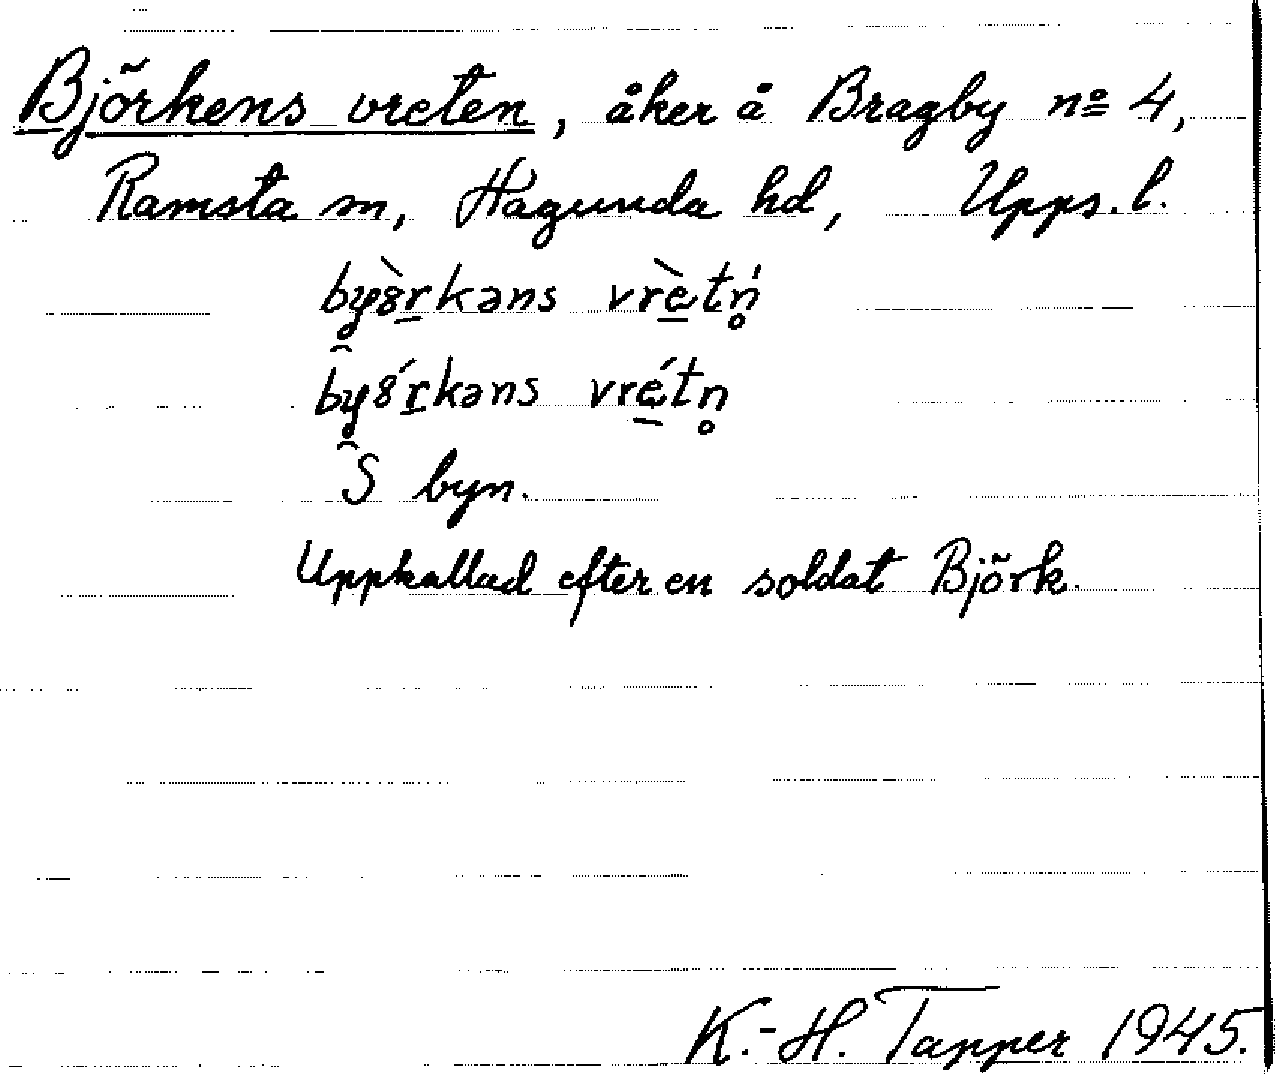 Björkens vreten, åker å Bragby nº 4,
Ramsta sn, Hagunda hd, Upps. l.
by̯ȣ̀r̲kəns vrè̲tń̥
by̯ȣ́r̲kəns vré̲tn̥
S byn.
Uppkallad efter en soldat Björk.
K.-H. Tapper 1945.